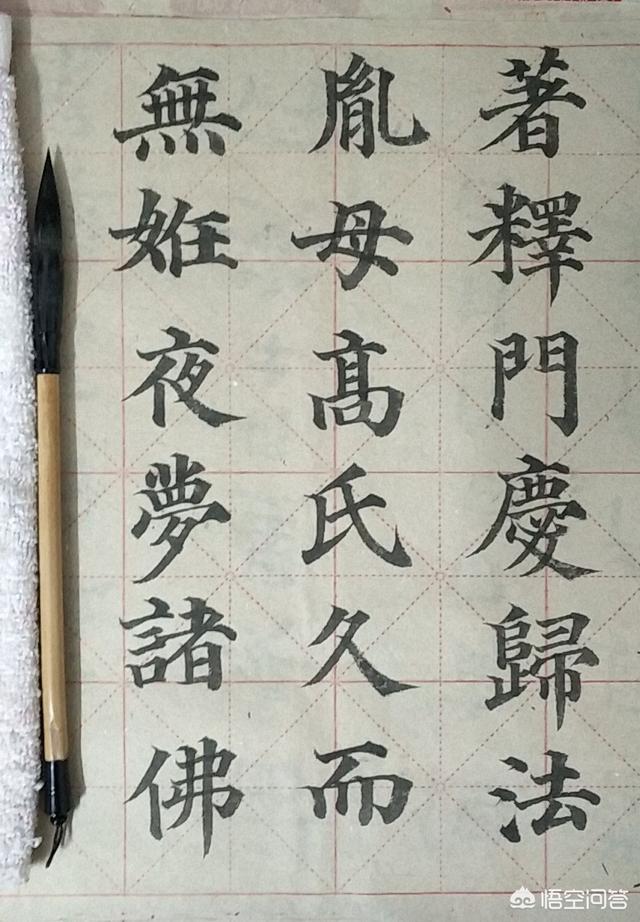 著釋門慶歸法
胤母高氏久而
無姙夜夢諸佛
悟空问答